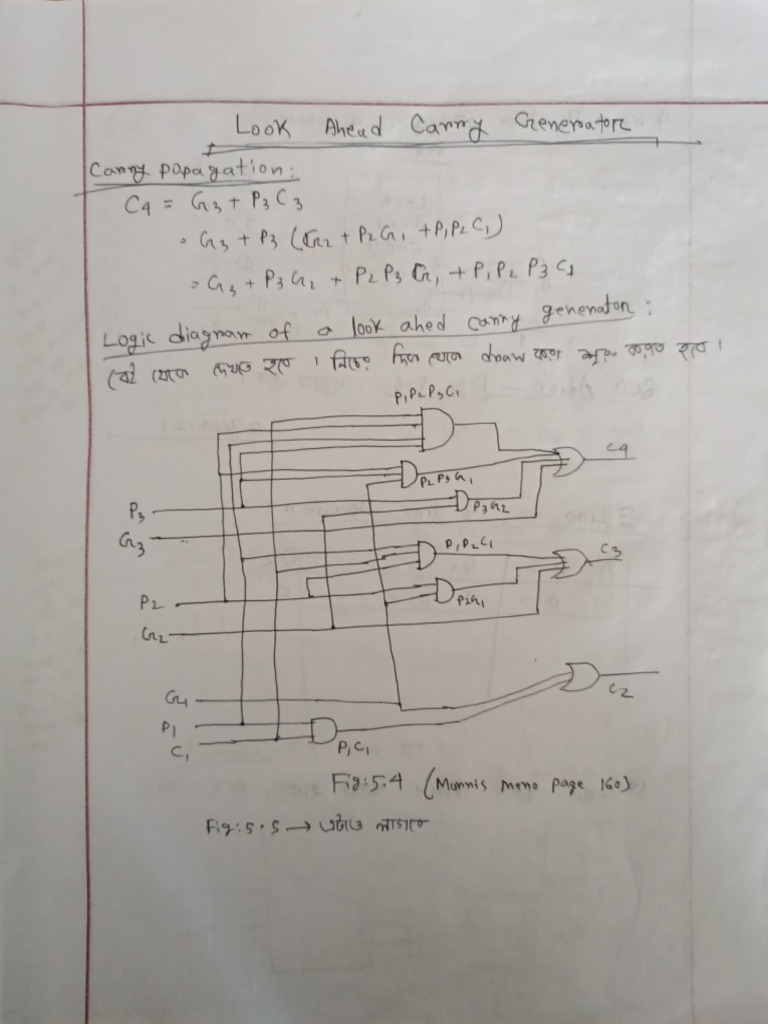 Look Ahead Carry Generator
Carry popagation:
C4 = G3 + P3 C3
= G3 + P3 (G2 + P2G1 + P1P2C1)
= G3 + P3G2 + P2P3 G1 + P1P2 P3 C1
Logic diagram of a look ahed carry generator:
বই থেকে দেখতে হবে । নিচের দিক থেকে draw করা শুরু করতে হবে ।
P1P2P3C1
C4
P2P3G1
P3G2
P3
G3
P1P2C1
C3
P2
P2G1
G2
G1
C2
P1
C1
P1C1
Fig:5.4 (Morris mano page 160)
Fig:5.5 → এটাও লাগবে